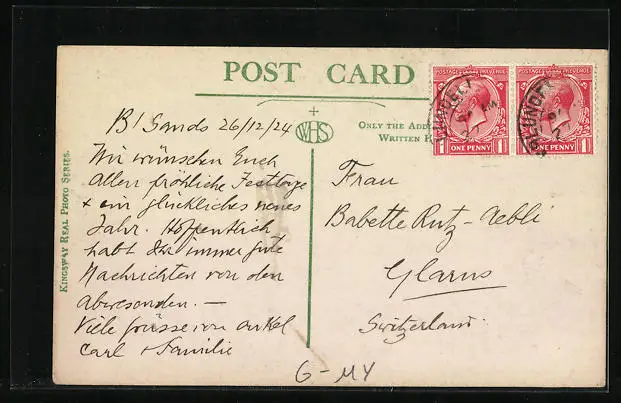 POST CARD
WHS
ONLY THE ADD
WRITTEN
KINGSWAY REAL PHOTO SERIES.
POSTAGE REVENUE
POSTAGE REVENUE
1 ONE PENNY 1
1 ONE PENNY 1
B/ Sands 26/12/24
Wir wünschen Euch
Allen fröhliche Festtage
+ ein glückliches neues
Jahr. Hoffentlich
habt Ihr immer gute
Nachrichten von den
Abwesenden. —
Viele grüsse von onkel
Carl + Familie
Frau
Babette Rutz-Aebli
Glarus
Switzerland.
G-MY